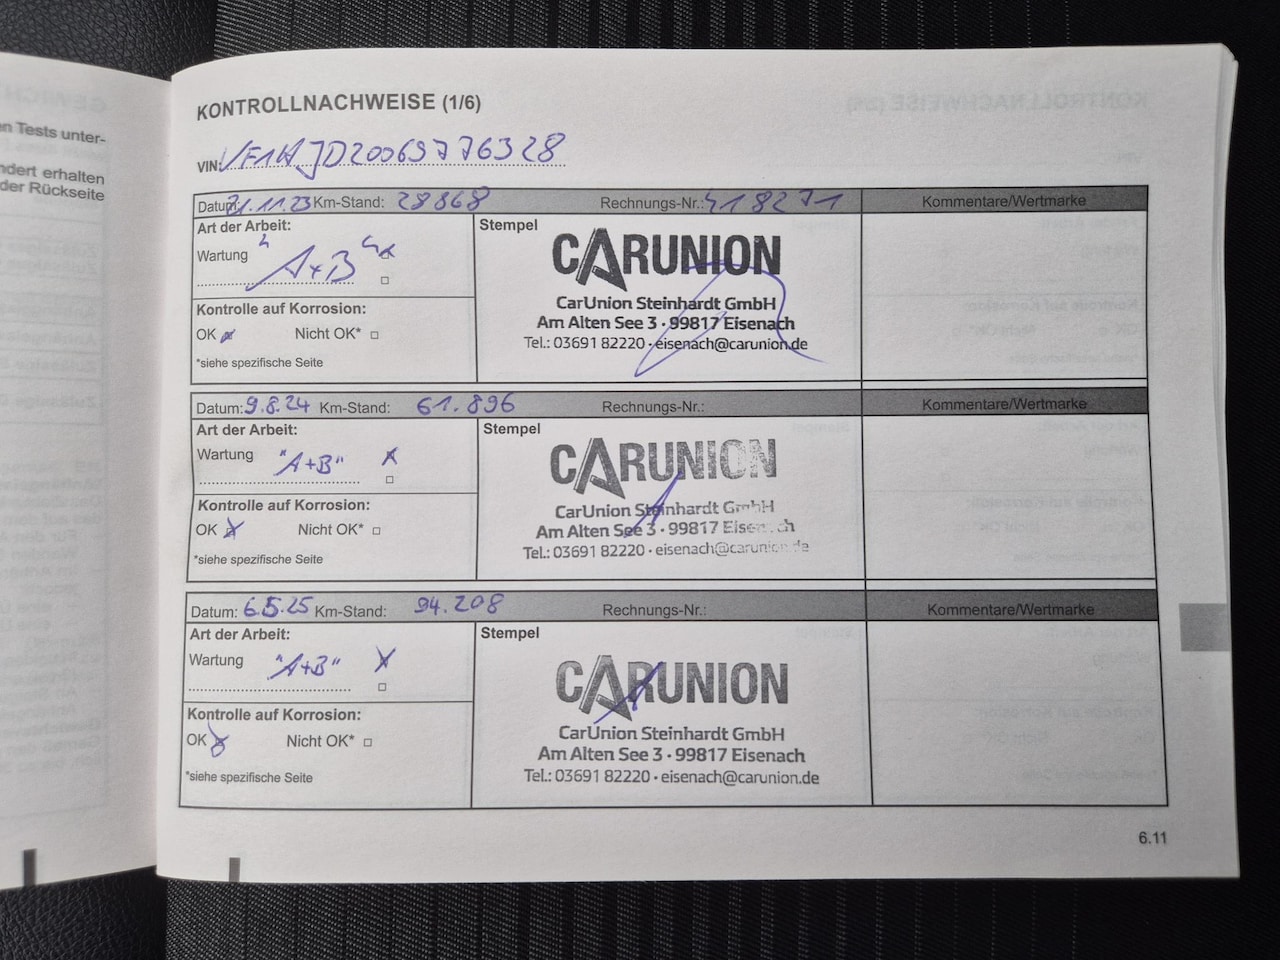 en Tests unter-
ndert erhalten
der Rückseite
KONTROLLNACHWEISE (1/6)
VIN:
Datum: 21.11.23 Km-Stand: 28868 Rechnungs-Nr.: 418271 Kommentare/Wertmarke
Art der Arbeit:
Wartung "A+B"
Kontrolle auf Korrosion:
OK Nicht OK*
*siehe spezifische Seite
Stempel
CARUNION
CarUnion Steinhardt GmbH
Am Alten See 3 · 99817 Eisenach
Tel.: 03691 82220 · eisenach@carunion.de
Datum: 9.8.24 Km-Stand: 61.896 Rechnungs-Nr.: Kommentare/Wertmarke
Art der Arbeit:
Wartung "A+B"
Kontrolle auf Korrosion:
OK Nicht OK*
*siehe spezifische Seite
Stempel
CARUNION
CarUnion Steinhardt GmbH
Am Alten See 3 · 99817 Eisenach
Tel.: 03691 82220 · eisenach@carunion.de
Datum: 6.5.25 Km-Stand: 94.208 Rechnungs-Nr.: Kommentare/Wertmarke
Art der Arbeit:
Wartung "A+B"
Kontrolle auf Korrosion:
OK Nicht OK*
*siehe spezifische Seite
Stempel
CARUNION
CarUnion Steinhardt GmbH
Am Alten See 3 · 99817 Eisenach
Tel.: 03691 82220 · eisenach@carunion.de
6.11